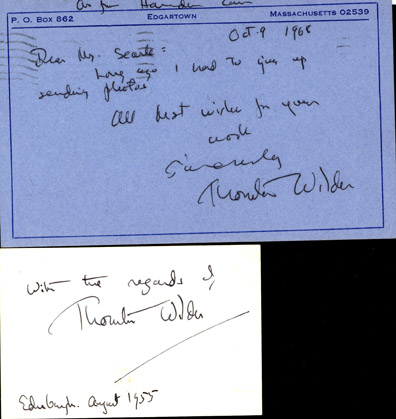 as from Hamden Conn
P. O. Box 862 Edgartown Massachusetts 02539
Oct. 9 1968
Dear Mr. Searle:
Long ago I had to give up
sending photos
All best wishes for your
work
Sincerely
Thornton Wilder
With the regards of
Thornton Wilder
Edinburgh. August 1955